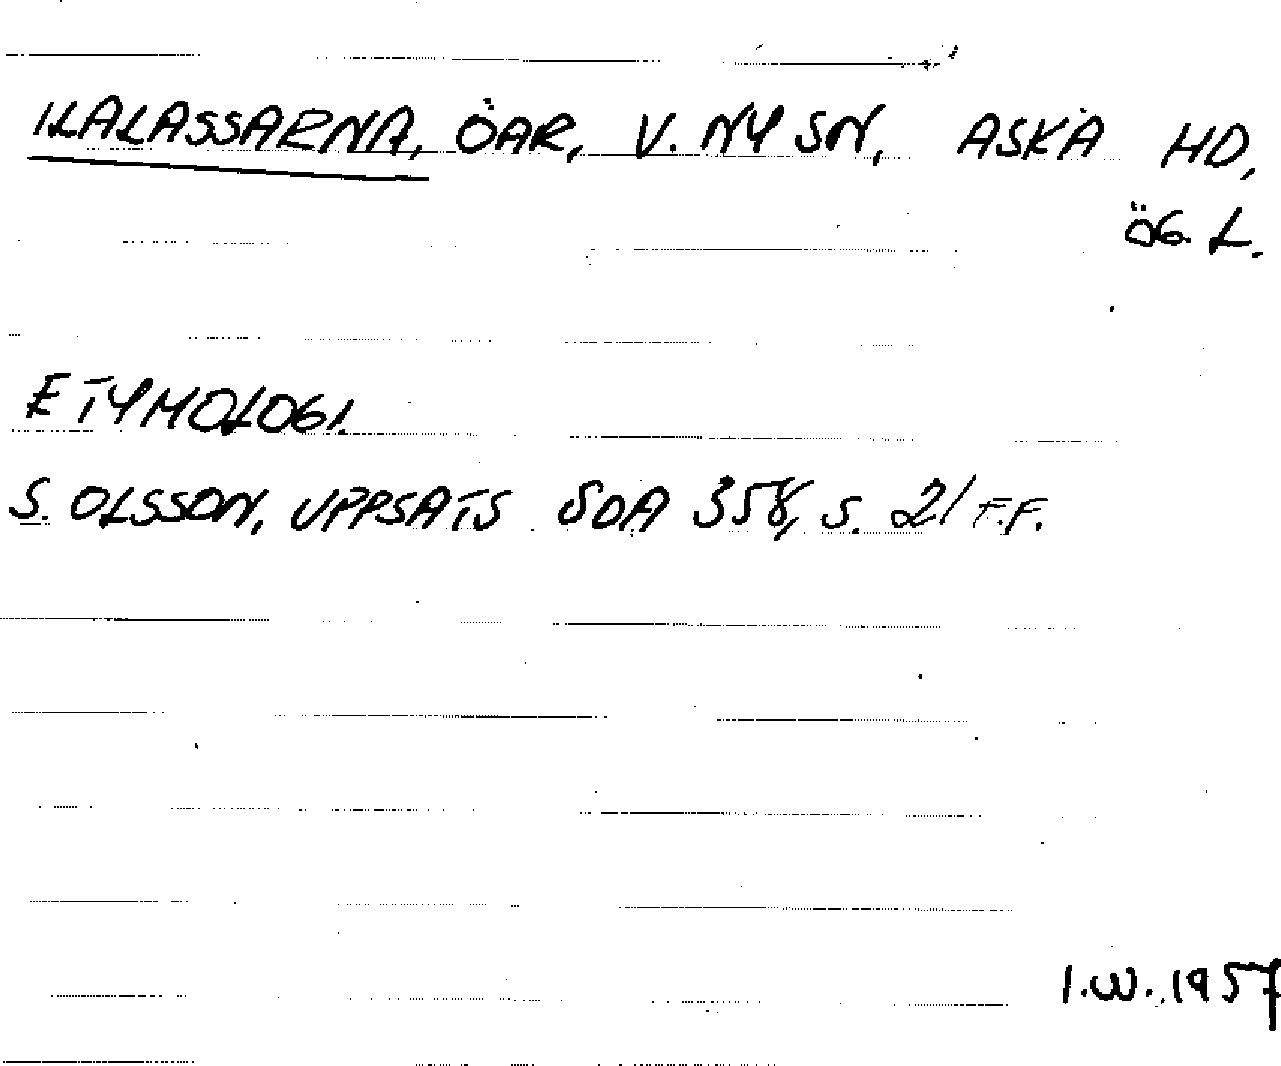 KALASSARNA, ÖAR, V. NY SN, ASKA HD,
ÖG. L.
ETYMOLOGI.
S. OLSSON, UPPSATS SOA 358, S. 21 F.F.
I.W. 1957